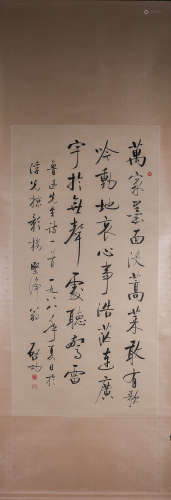 萬家墨面沒蒿萊敢有歌
吟動地哀心事浩茫連廣
宇於無聲處聽驚雷
魯迅先生詩一首一九八八年夏日於
浮光掠影樓 堅淨翁 啟功